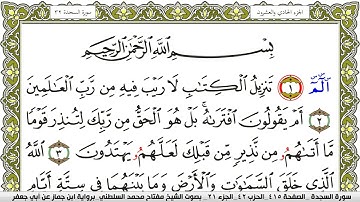 الجزء الحادي والعشرون
سورة السجدة ٣٢
بِسْمِ اللَّهِ الرَّحْمَٰنِ الرَّحِيمِ
الٓمٓ ١ تَنزِيلُ الْكِتَابِ لَا رَيْبَ فِيهِ مِن رَّبِّ الْعَالَمِينَ
٢ أَمْ يَقُولُونَ افْتَرَاهُ بَلْ هُوَ الْحَقُّ مِن رَّبِّكَ لِتُنذِرَ قَوْمًا
مَّا أَتَاهُمُ مِّن نَّذِيرٍ مِّن قَبْلِكَ لَعَلَّهُمُ يَهْتَدُونَ ٣ اللَّهُ
الَّذِي خَلَقَ السَّمَاوَاتِ وَالْأَرْضَ وَمَا بَيْنَهُمَا فِي سِتَّةِ أَيَّامٍ
سورة السجدة، الصفحة ٤١٥، الحزب ٤٢، الجزء ٢١، بصوت الشيخ مفتاح محمد السلطني برواية ابن جماز عن أبي جعفر